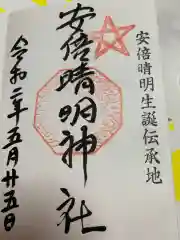 安倍晴明生誕伝承地
安倍晴明神社
令和二年五月廿五日